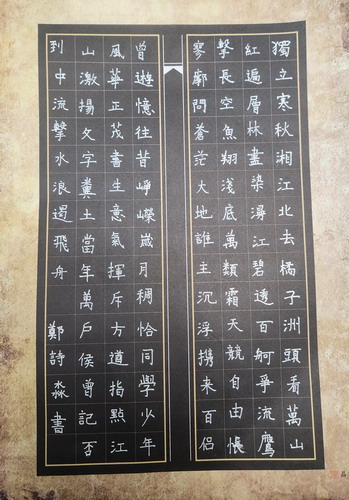 獨立寒秋湘江北去橘子洲頭看萬山
紅遍層林盡染漫江碧透百舸爭流鷹
擊長空魚翔淺底萬類霜天競自由悵
寥廓問蒼茫大地誰主沉浮携来百侶
曾遊憶往昔崢嶸歲月稠恰同學少年
風華正茂書生意氣揮斥方遒指點江
山激揚文字糞土當年萬戶侯曾記否
到中流擊水浪遏飛舟 鄭詩淼書